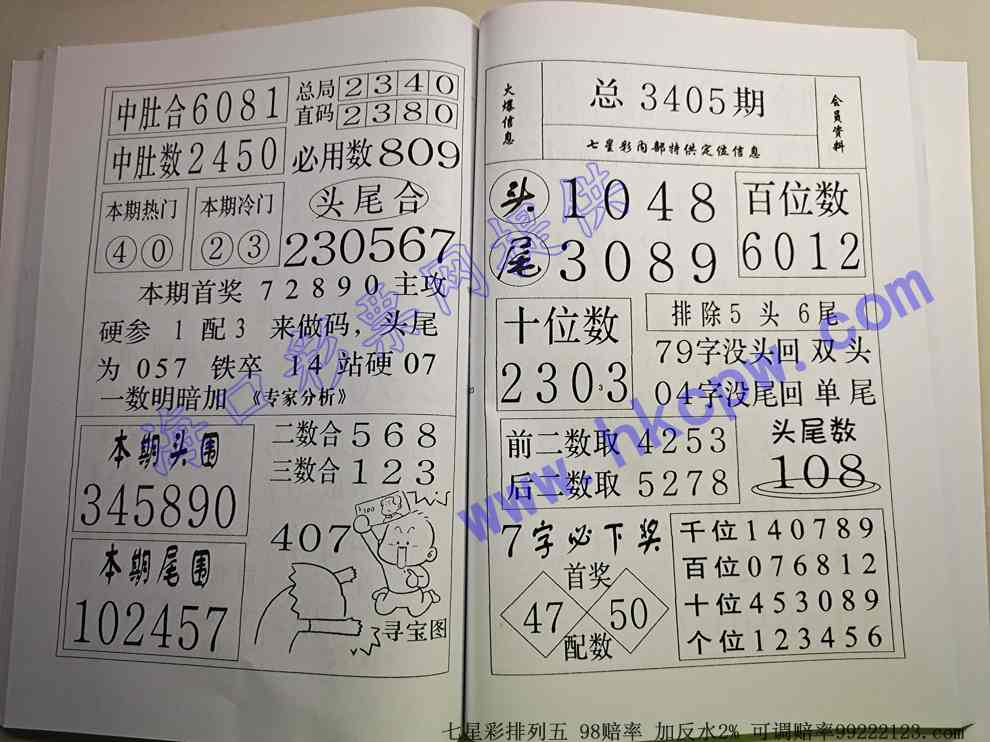 中肚合6081
总局2340
直码2380
中肚数2450
必用数809
本期热门
④⓪
本期冷门
②③
头尾合
230567
本期首奖 72890 主攻
硬参 1 配 3 来做码，头尾
为 057 铁卒 14 站硬 07
一数明暗加 《专家分析》
本期头围
345890
二数合 568
三数合 123
本期尾围
102457
407
100
寻宝图
火爆信息
总 3405期
七星彩内部特供定位信息
会员资料
头 1048
尾 3089
百位数
6012
十位数
2303
排除5 头 6尾
79字没头回 双 头
04字没尾回 单 尾
前二数取 4253
后二数取 5278
头尾数
108
7字必下奖
首奖
47 50
配数
千位140789
百位076812
十位453089
个位123456
海口彩票网提供
www.hkcpw.com
七星彩排列五 98赔率 加反水2% 可调赔率99222123.com